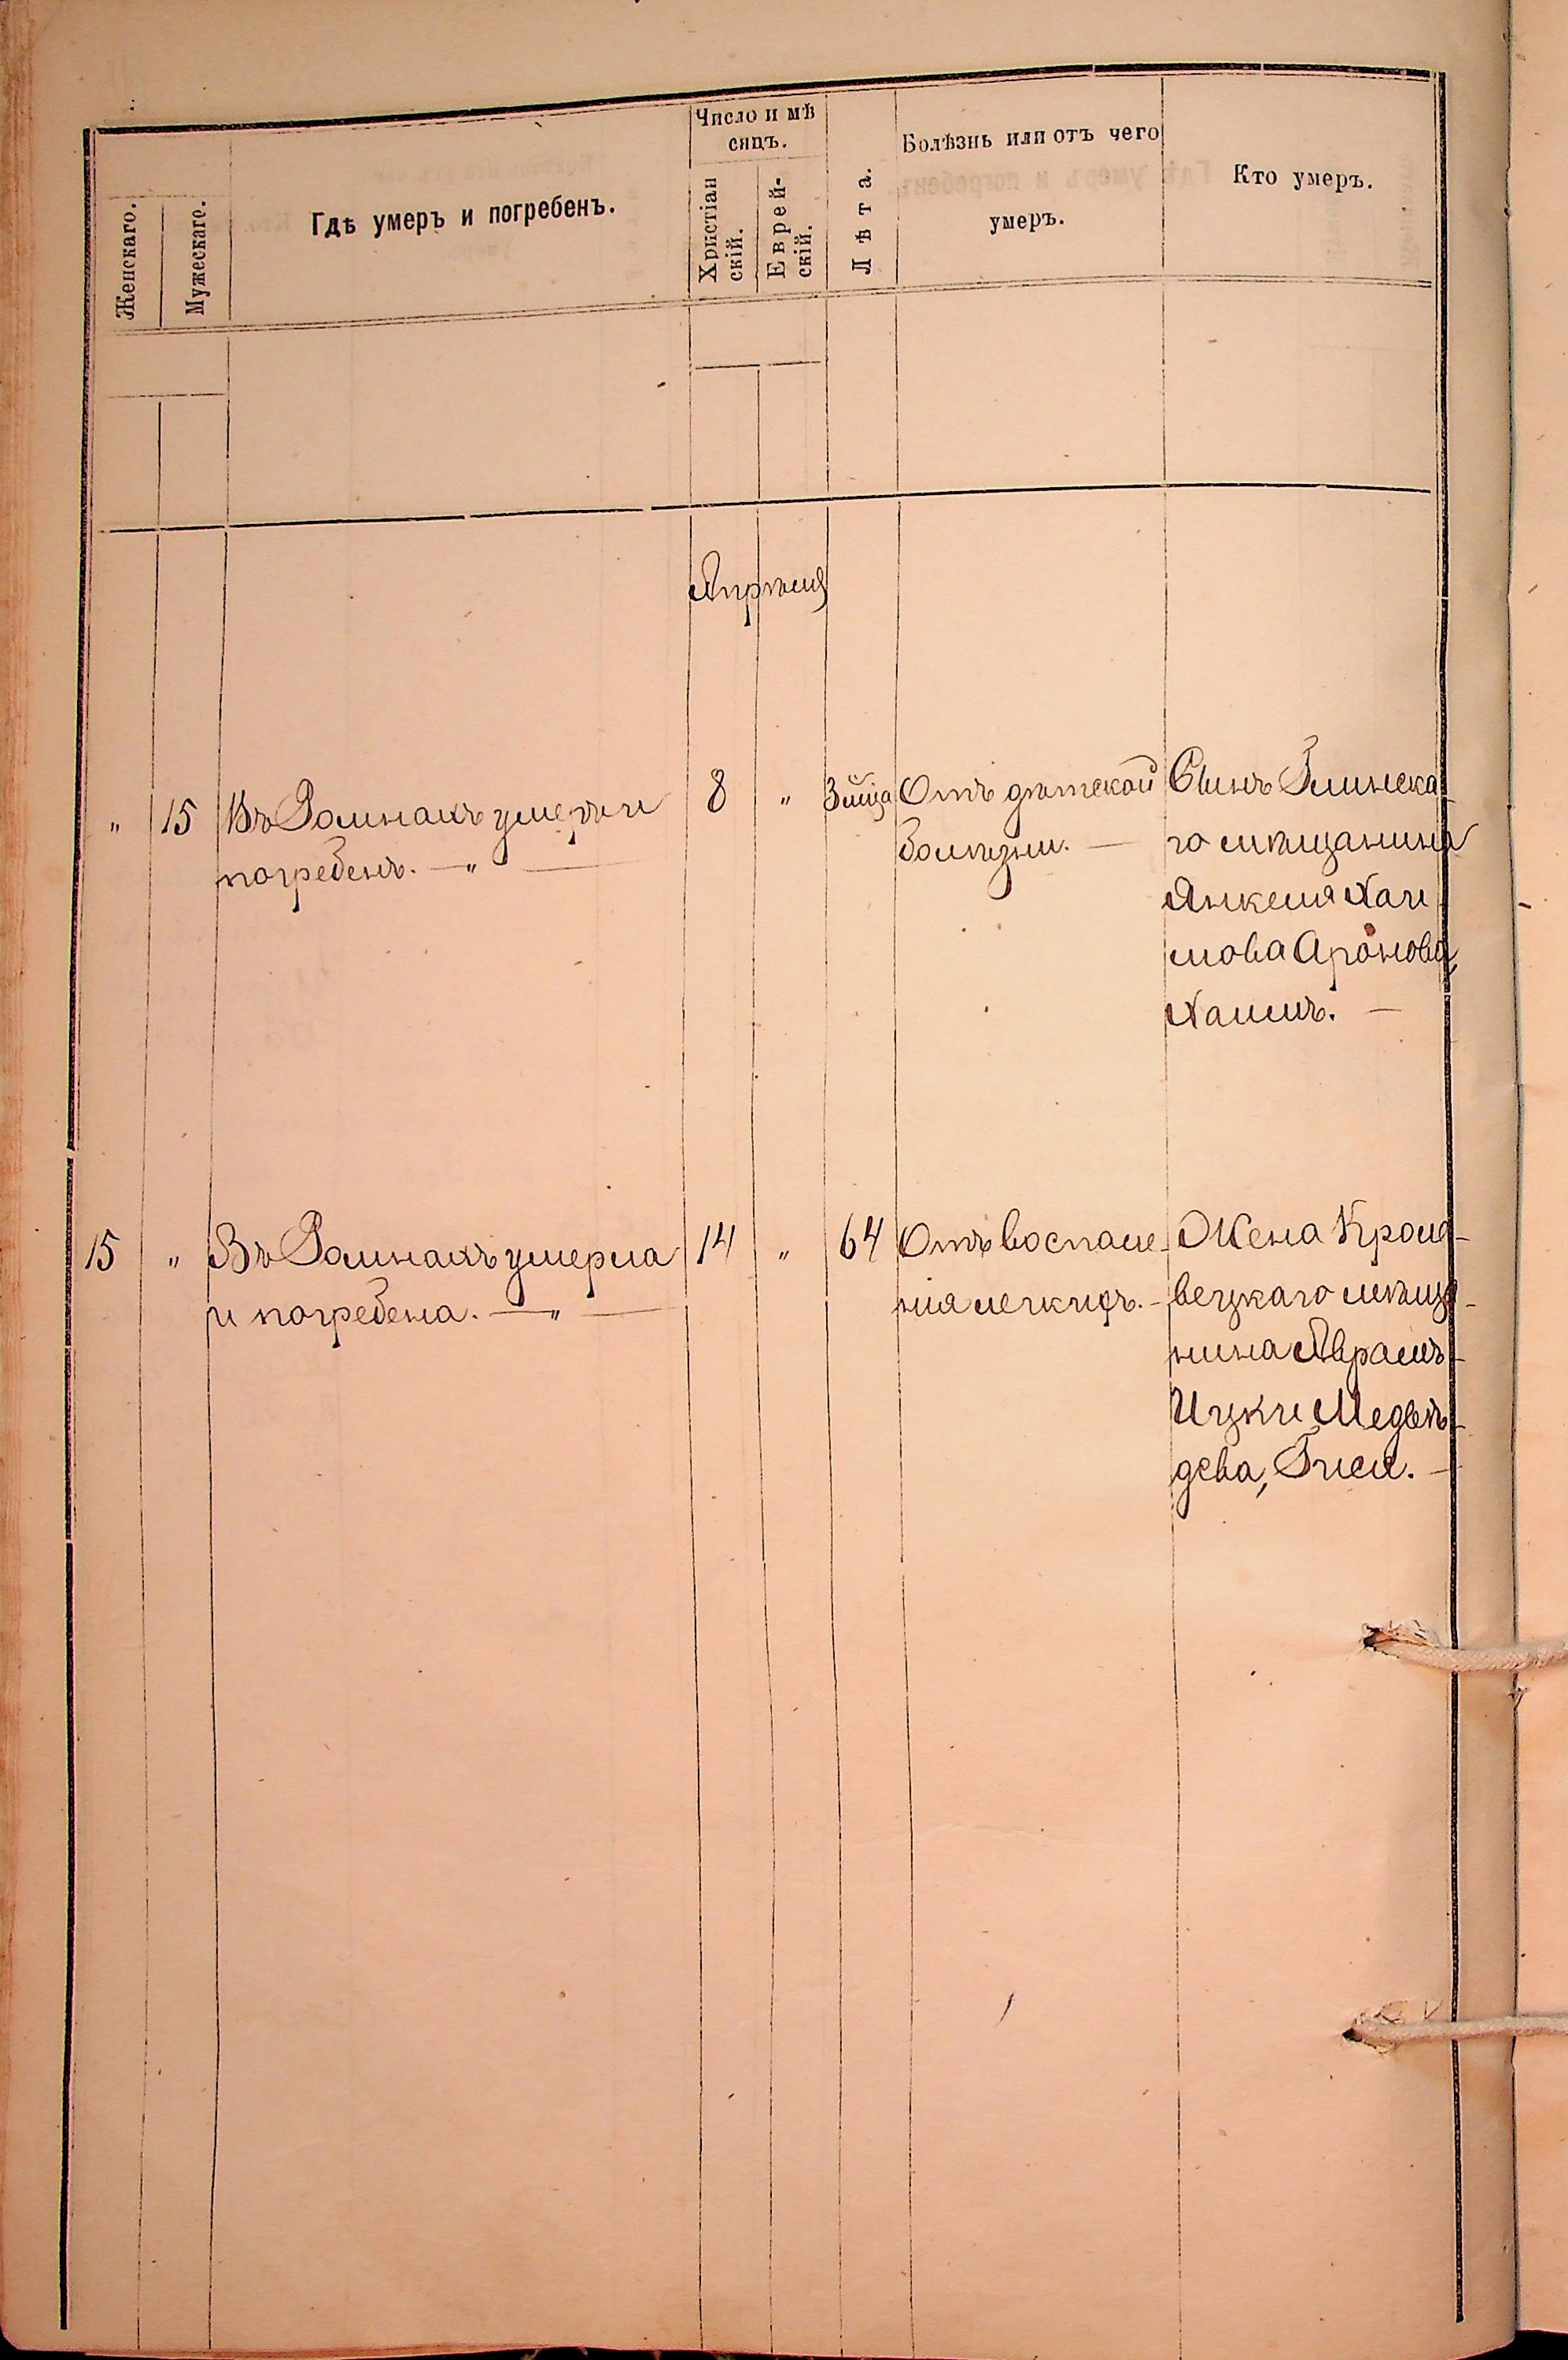 Женскаго.
Мужескаго.
Гдѣ умеръ и погребенъ.
Число и мѣ
сяцъ.
Христіан
скій.
Еврей-
скій.
Лѣта.
Болѣзнь или отъ чего
умеръ.
Кто умеръ.
Апрѣля
" 15
Въ Ромнахъ умеръ и
погребенъ. — " —
8 "
3 мца
Отъ дѣтской
болѣзни. —
Сынъ Глинска-
го мѣщанина
Янкеля Хаи
мова Аронова,
Хаимъ. —
15 "
Въ Ромнахъ умерла
и погребена. — " —
14 "
64
Отъ воспале-
нія легкихъ. -
Жена Кроле-
вецкаго мѣща-
нина Абрамъ-
Ицки Медвѣ-
дева, Геся. —